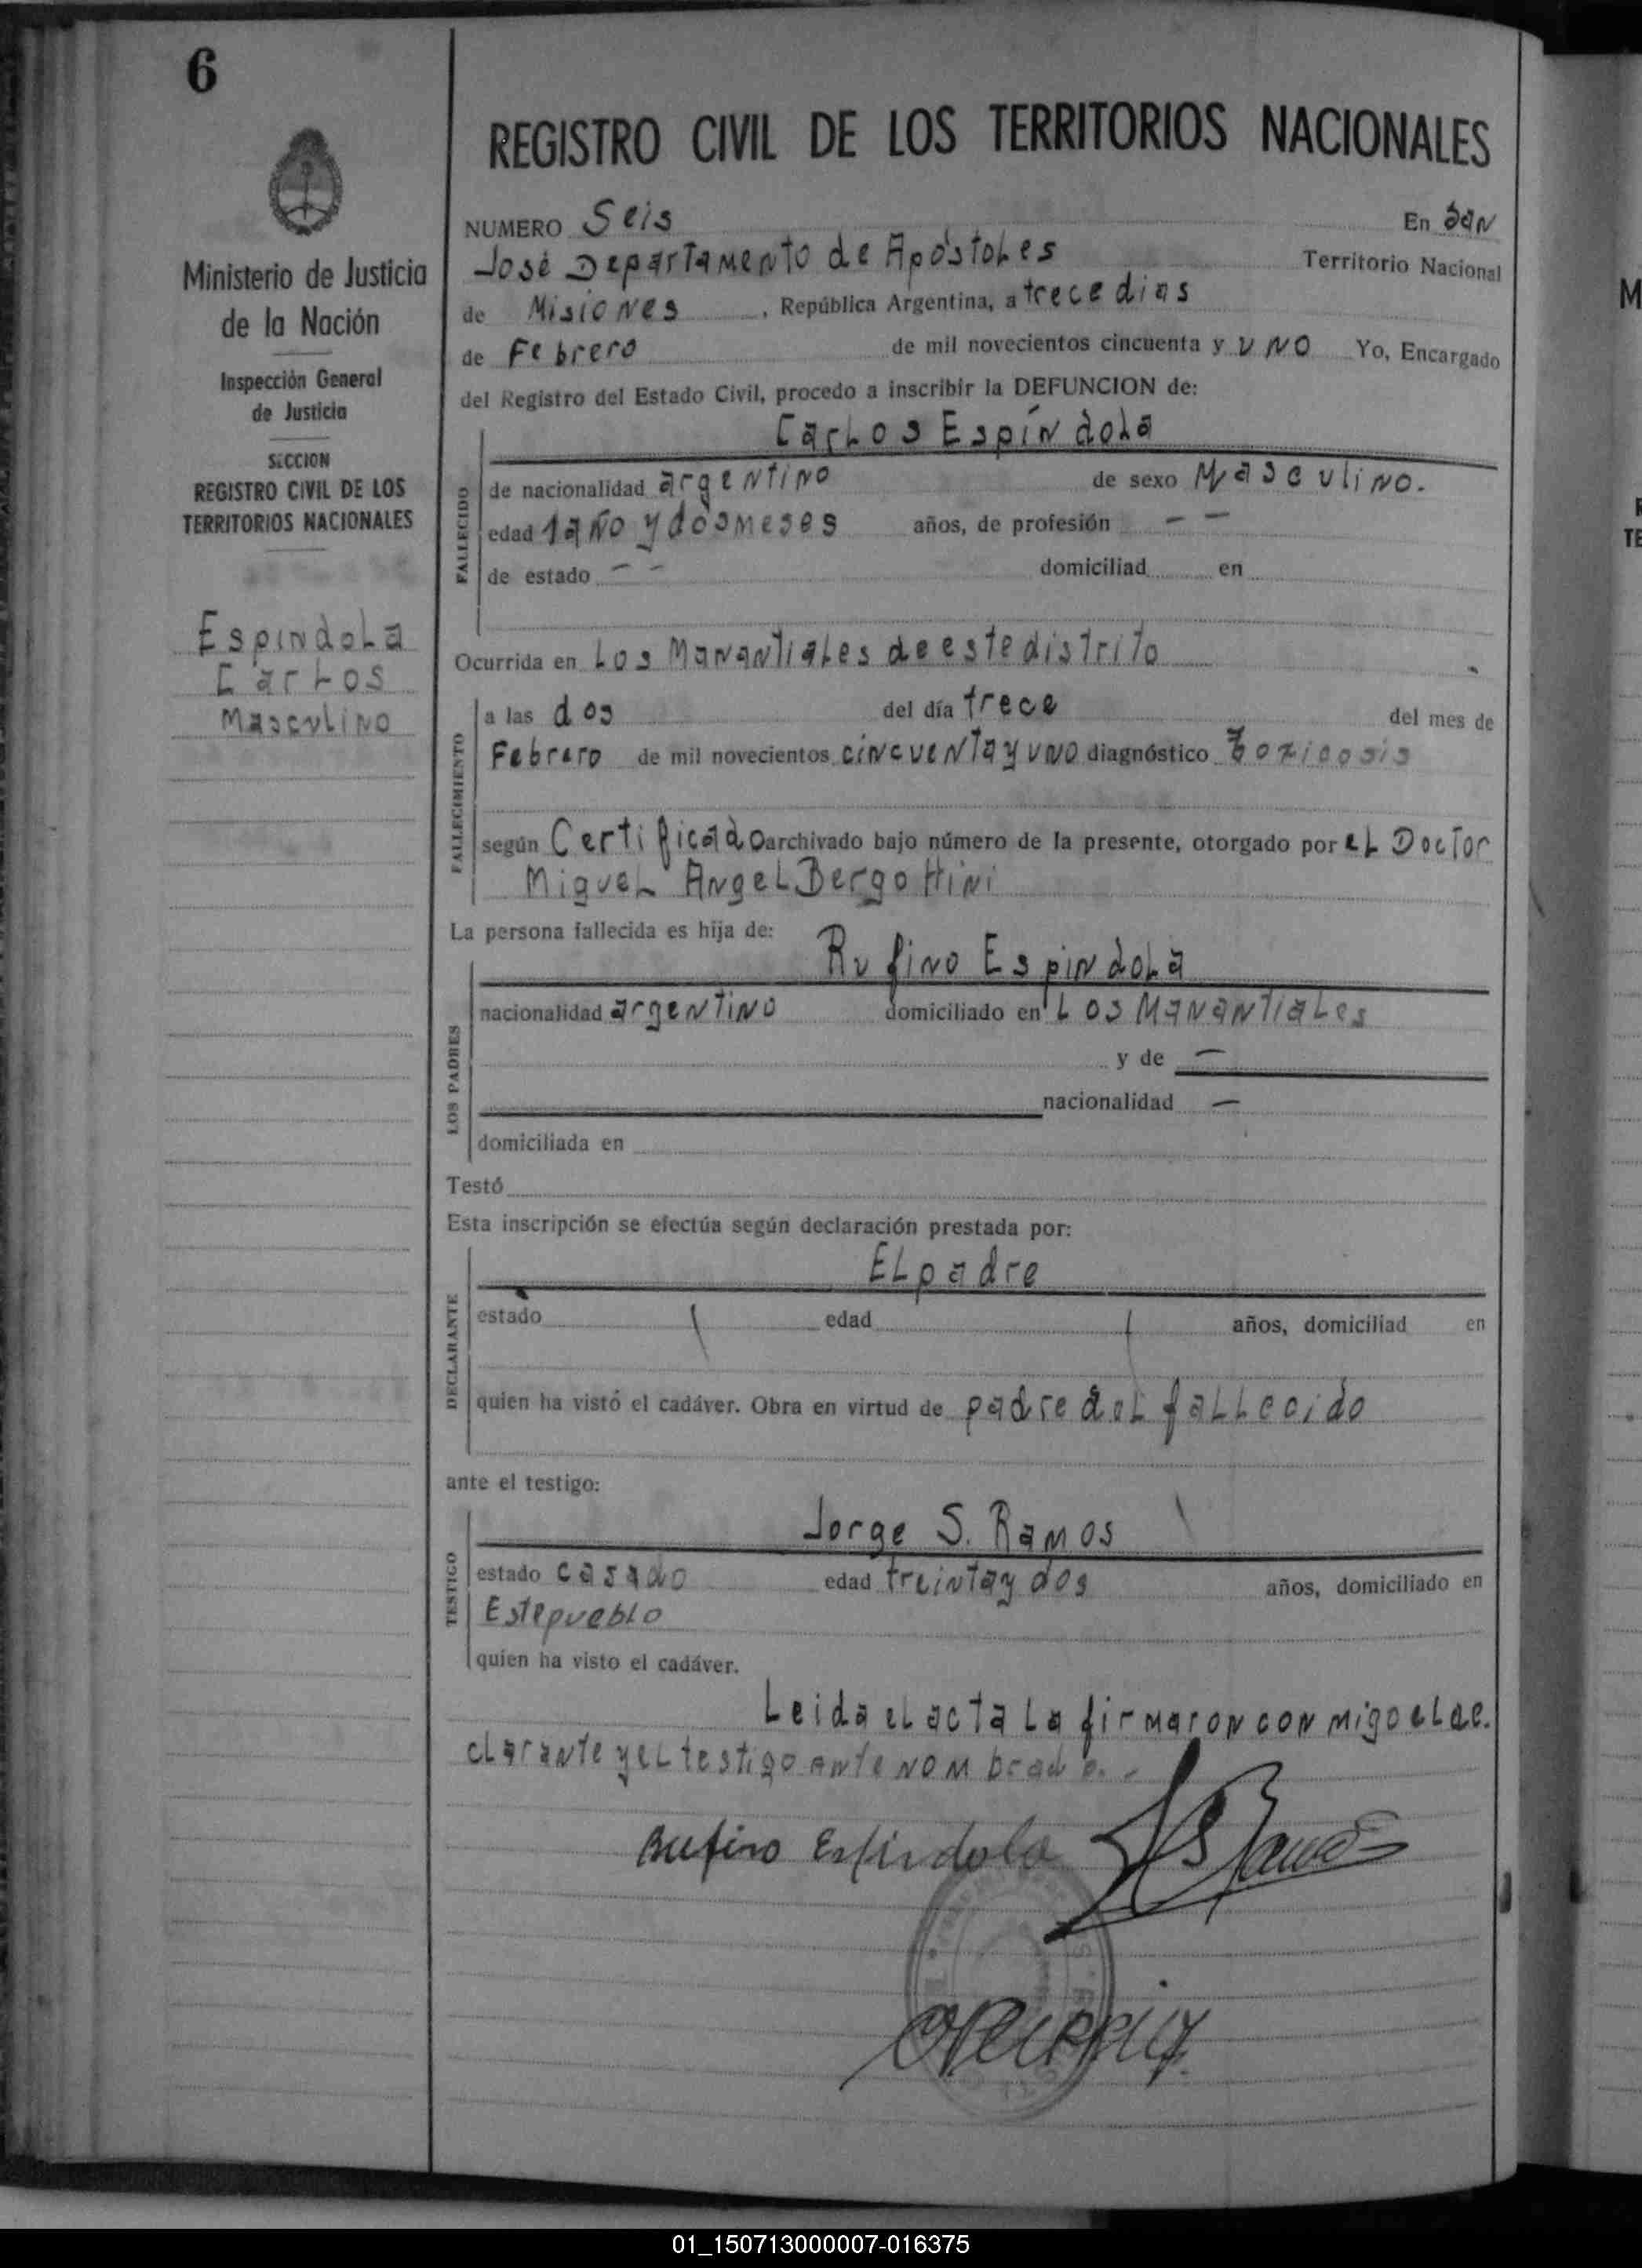 6
Ministerio de Justicia
de la Nación
Inspección General
de Justicia
SECCION
REGISTRO CIVIL DE LOS
TERRITORIOS NACIONALES
Espindola
Carlos
Masculino
REGISTRO CIVIL DE LOS TERRITORIOS NACIONALES
NUMERO Seis En San
José Departamento de Apóstoles Territorio Nacional
de Misiones, República Argentina, a trece dias
de Febrero de mil novecientos cincuenta y uno Yo, Encargado
del Registro del Estado Civil, procedo a inscribir la DEFUNCION de:
Carlos Espíndola
FALLECIDO
de nacionalidad argentino de sexo Masculino.
edad 1 año y dos meses años, de profesión - -
de estado - - domiciliad en
Ocurrida en Los Manantiales de este distrito
FALLECIMIENTO
a las dos del día trece del mes de
Febrero de mil novecientos cincuenta y uno diagnóstico Toxicosis
según Certificado archivado bajo número de la presente, otorgado por el Doctor
Miguel Angel Bergottini
La persona fallecida es hija de:
Rufino Espindola
LOS PADRES
nacionalidad argentino domiciliado en Los Manantiales
y de —
nacionalidad —
domiciliada en
Testó
Esta inscripción se efectúa según declaración prestada por:
El padre
DECLARANTE
estado edad años, domiciliad en
quien ha visto el cadáver. Obra en virtud de padre del fallecido
ante el testigo:
Jorge S. Ramos
TESTIGO
estado casado edad treinta y dos años, domiciliado en
Este pueblo
quien ha visto el cadáver.
Leida el acta la firmaron con migo el de.
clarante y el testigo ante nombrado.-
Rufino Espindola JS Ramos
01_150713000007-016375
M
TE